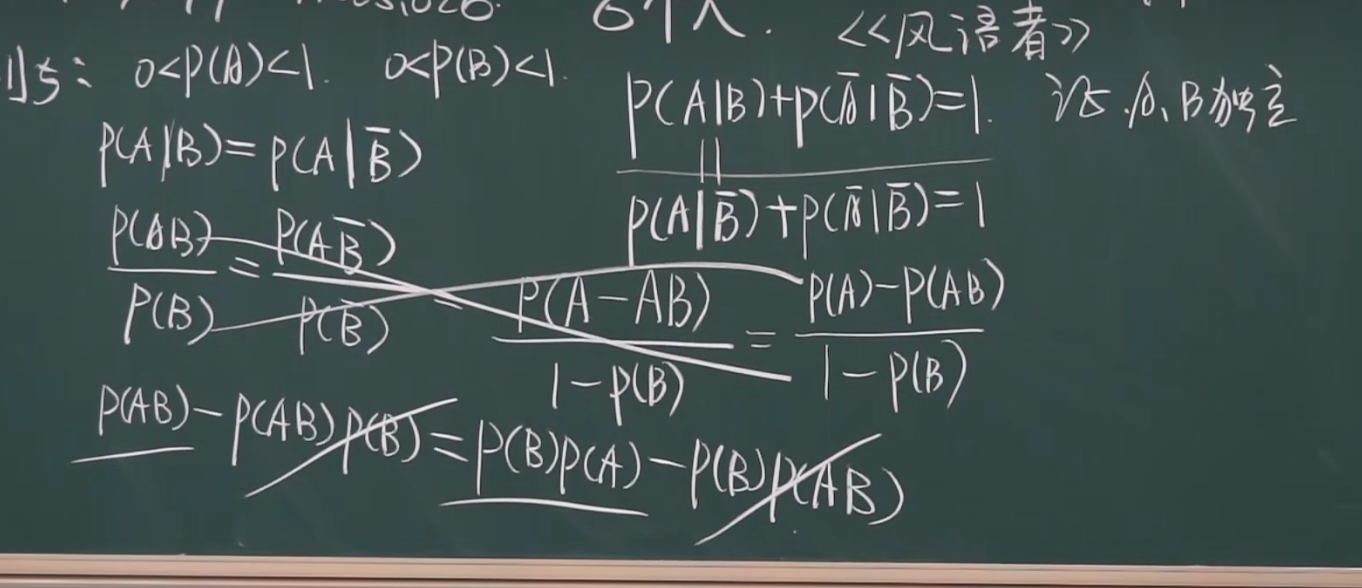 6个人. <<风语者>>
例5: 0<P(A)<1. 0<P(B)<1. P(A|B)+P(Ā|B̄)=1. 证 A、B独立
P(A|B)=P(A|B̄)
P(A|B̄)+P(Ā|B̄)=1
P(AB)/P(B) = P(AB̄)/P(B̄) = P(A-AB)/1-P(B) = P(A)-P(AB)/1-P(B)
P(AB)-P(AB)P(B)=P(B)P(A)-P(B)P(AB)